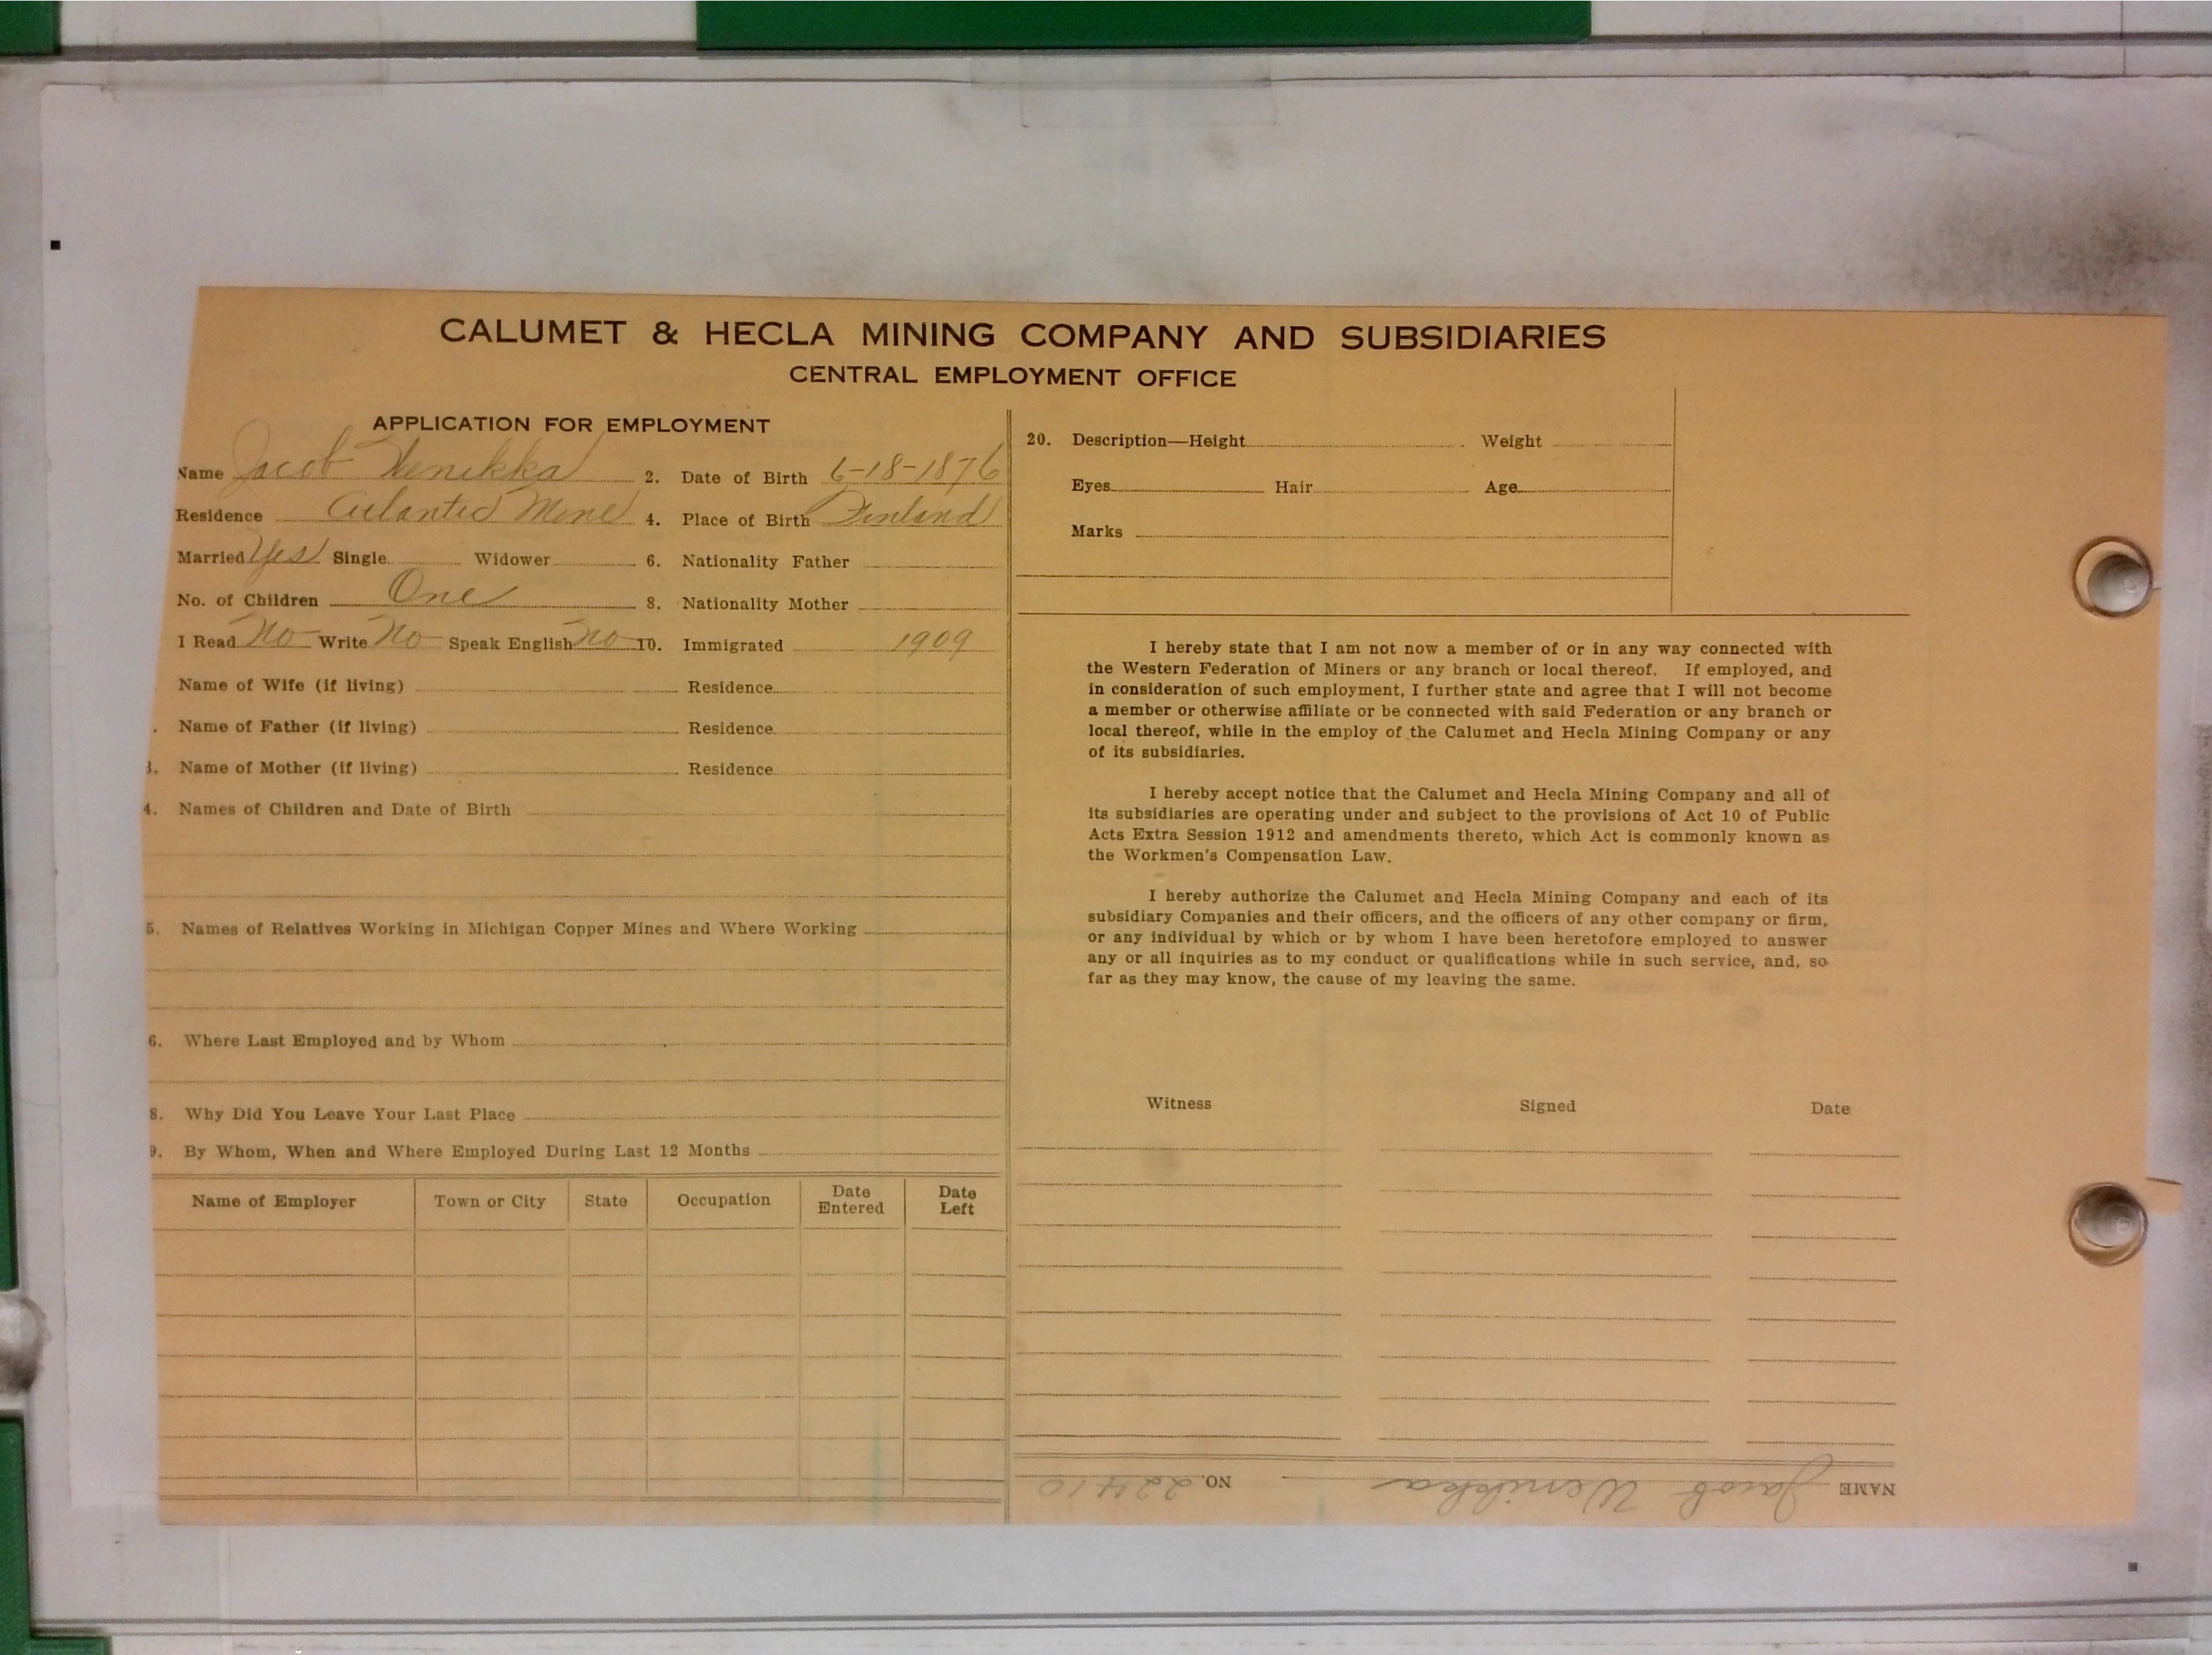 CALUMET & HECLA MINING COMPANY AND SUBSIDIARIES
CENTRAL EMPLOYMENT OFFICE
APPLICATION FOR EMPLOYMENT
Name Jacob Wenikka 2. Date of Birth 6-18-1876
Residence Atlantic Mine 4. Place of Birth Finland
Married Yes Single Widower 6. Nationality Father
No. of Children One 8. Nationality Mother
I Read No Write No Speak English No 10. Immigrated 1909
Name of Wife (if living) Residence
. Name of Father (if living) Residence
3. Name of Mother (if living) Residence
4. Names of Children and Date of Birth
5. Names of Relatives Working in Michigan Copper Mines and Where Working
6. Where Last Employed and by Whom
8. Why Did You Leave Your Last Place
9. By Whom, When and Where Employed During Last 12 Months
Name of Employer Town or City State Occupation Date Entered Date Left
20. Description—Height Weight
Eyes Hair Age
Marks
I hereby state that I am not now a member of or in any way connected with
the Western Federation of Miners or any branch or local thereof. If employed, and
in consideration of such employment, I further state and agree that I will not become
a member or otherwise affiliate or be connected with said Federation or any branch or
local thereof, while in the employ of the Calumet and Hecla Mining Company or any
of its subsidiaries.
I hereby accept notice that the Calumet and Hecla Mining Company and all of
its subsidiaries are operating under and subject to the provisions of Act 10 of Public
Acts Extra Session 1912 and amendments thereto, which Act is commonly known as
the Workmen's Compensation Law.
I hereby authorize the Calumet and Hecla Mining Company and each of its
subsidiary Companies and their officers, and the officers of any other company or firm,
or any individual by which or by whom I have been heretofore employed to answer
any or all inquiries as to my conduct or qualifications while in such service, and, so
far as they may know, the cause of my leaving the same.
Witness Signed Date
NAME Jacob Wenikka NO. 22410